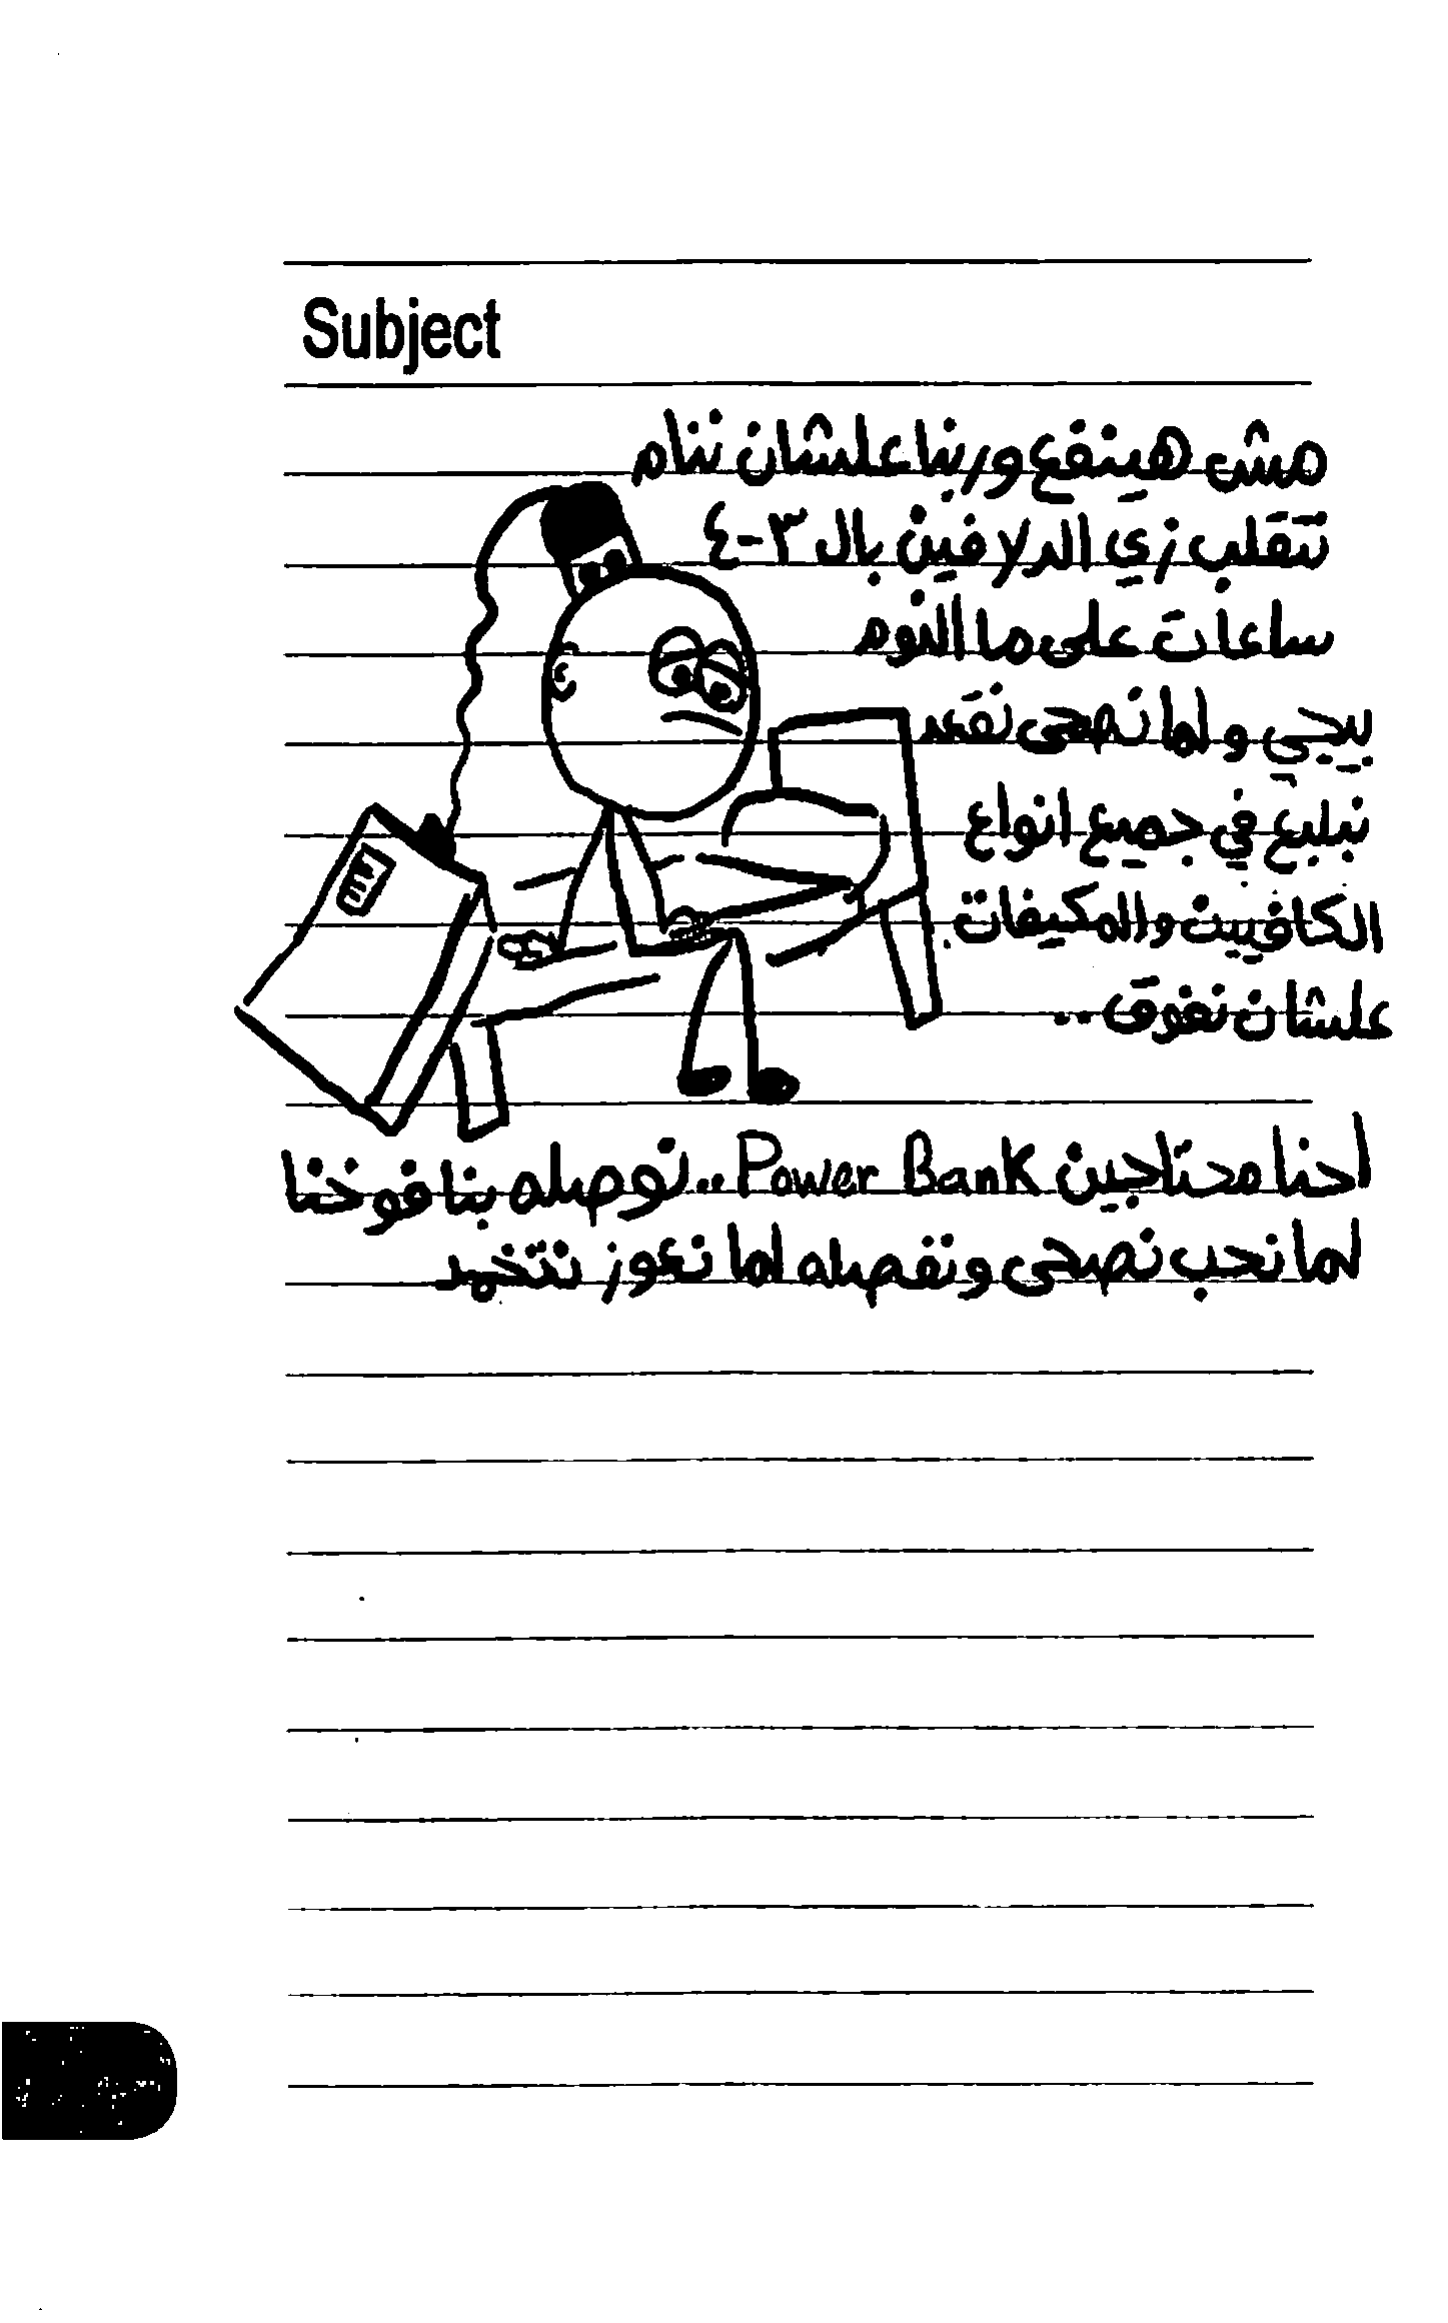 Subject
مش هينفع وربنا علشان ننام
نتقلب زي الدلافين بال ٣-٤
ساعات على ما النوم
ييجي ولما نصحى نقعد
نبلبع في جميع انواع
الكافيين والمكيفات
علشان نفوق..
احنا محتاجين Power Bank.. نوصله بنافوخنا
لما نحب نصحى ونفصله لما نعوز نتخمد